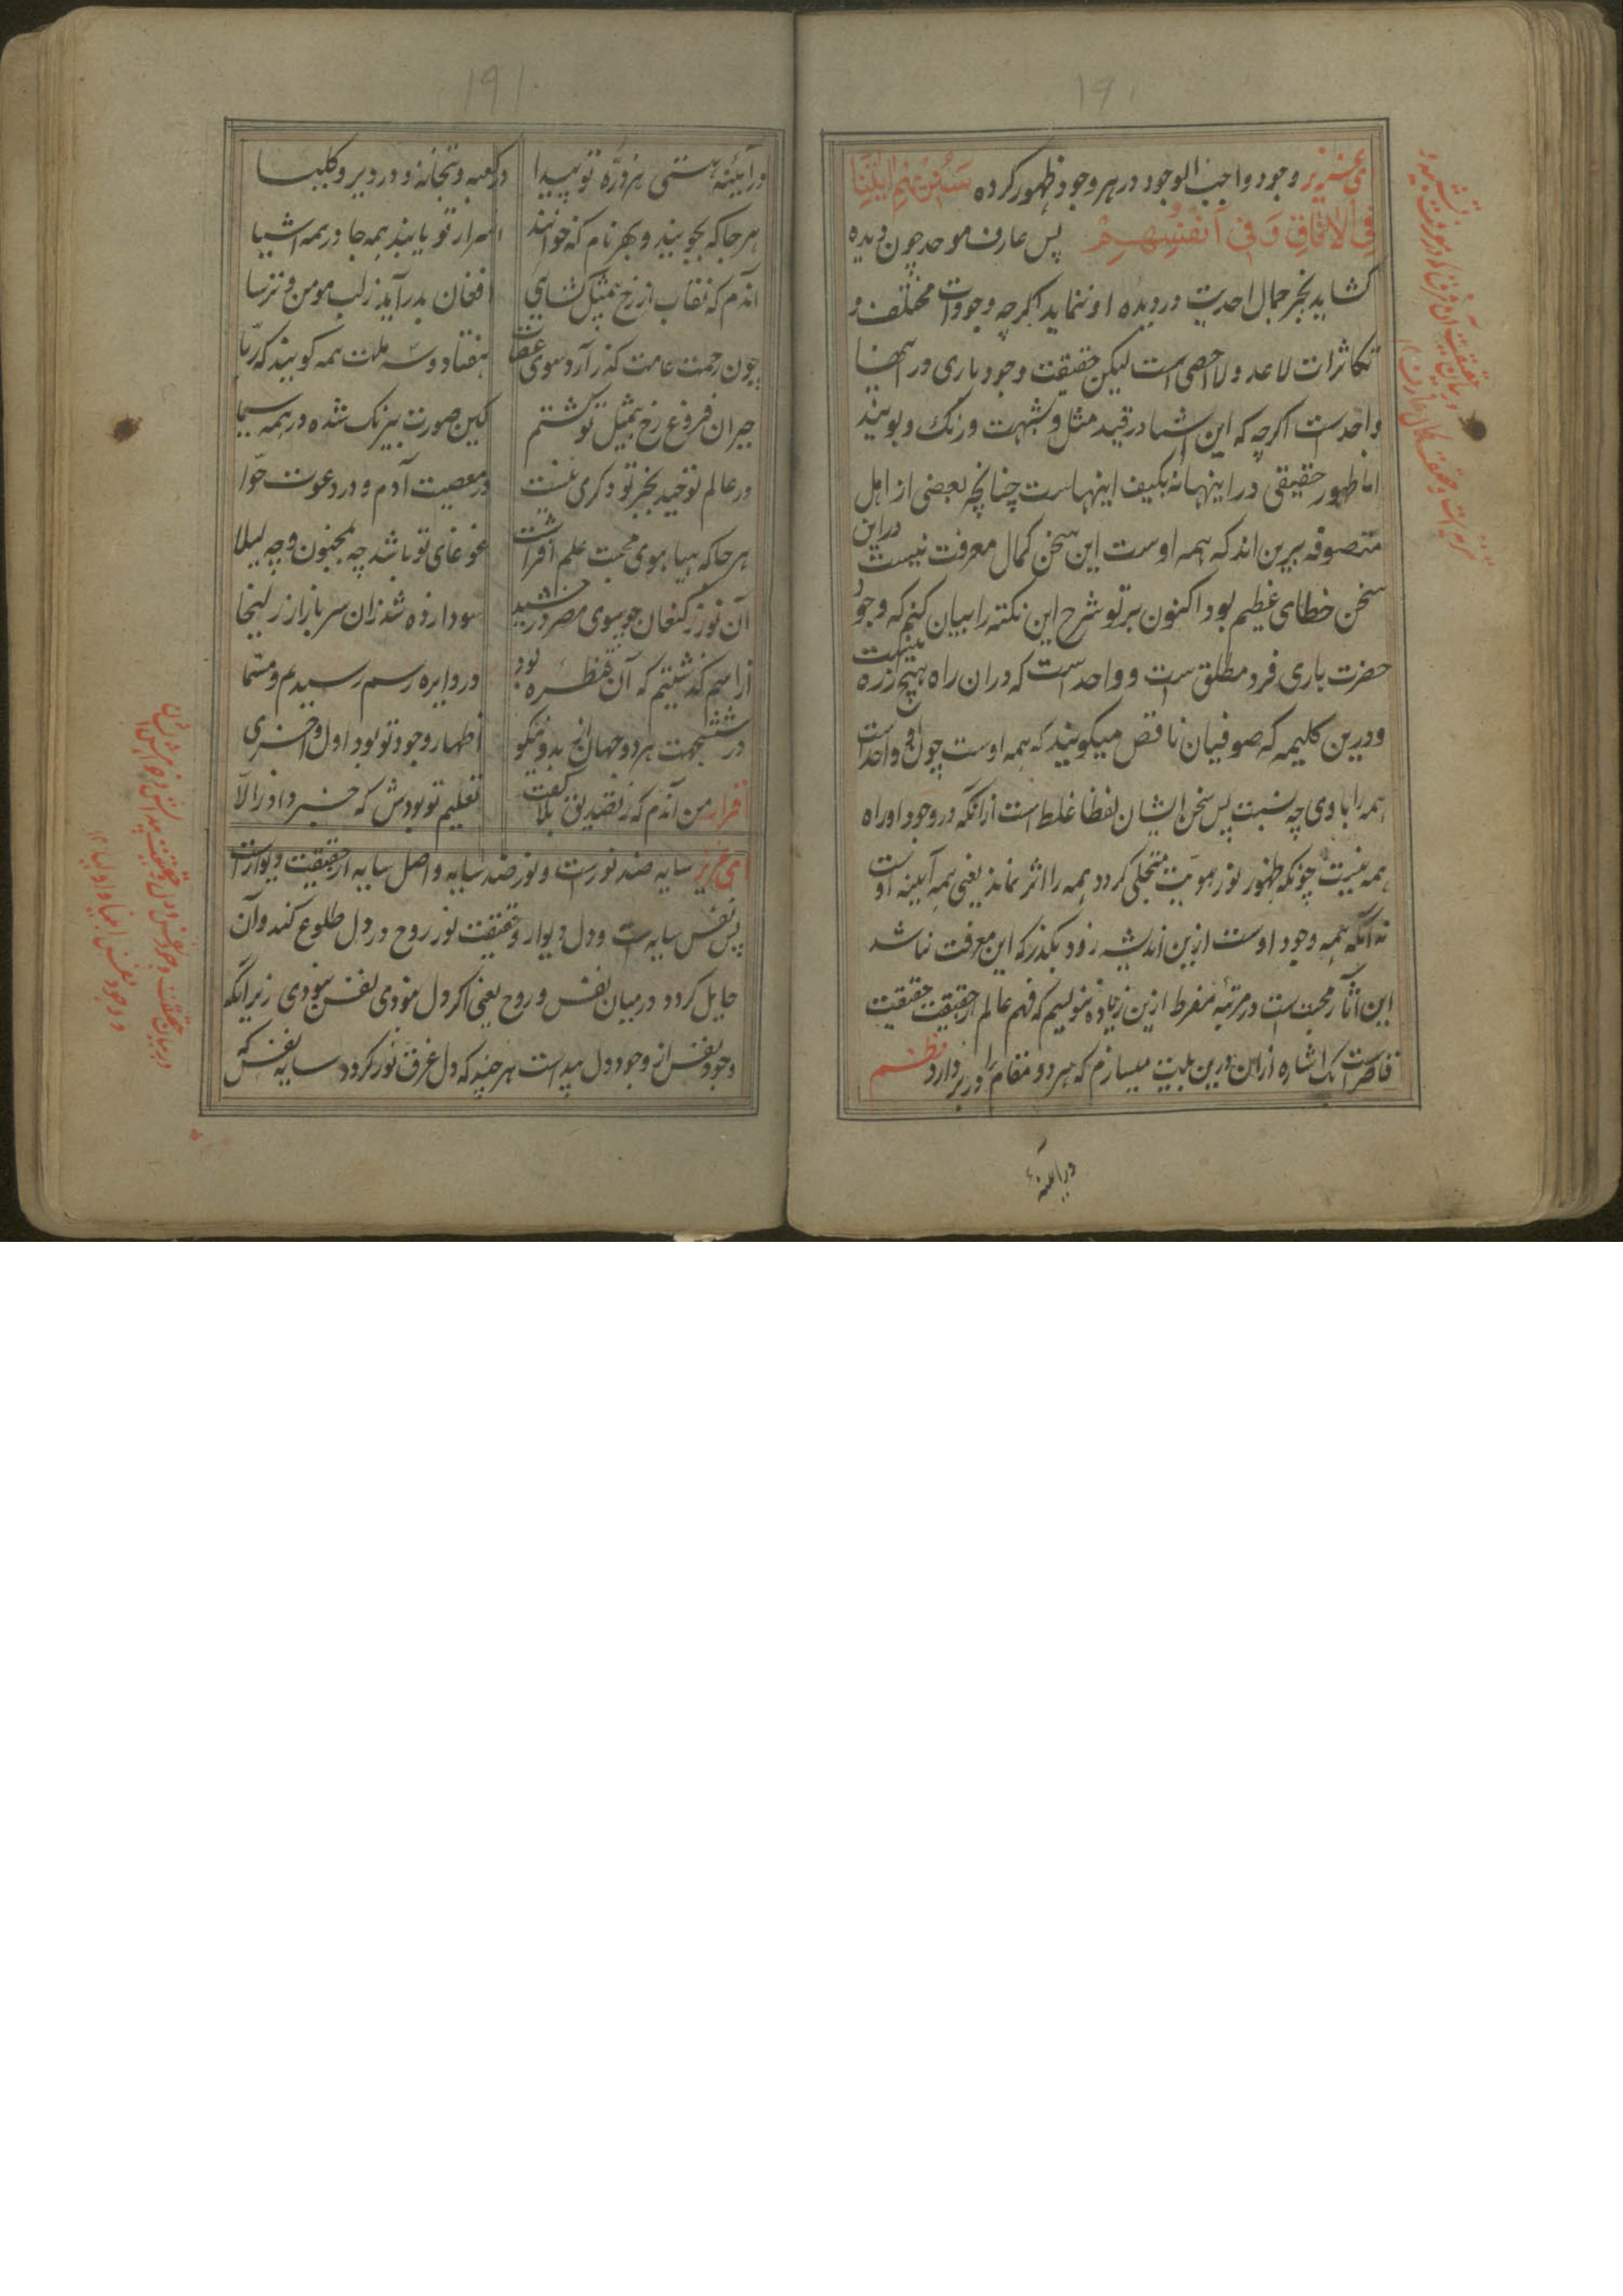 ۱۹۰
ای عزیز وجود واجب الوجود در هر وجود ظهور کرده سَنُرِيْهِمْ اٰيٰتِنَا
فِي الْاٰفَاقِ وَفِيْ اَنْفُسِهِمْ پس عارف موحد چون دیده
کشاید بجز جمال احدیت در دیده او ننماید اکرچه وجودات مختلف و
تکاثرات لاعد ولا احصی است لیکن حقیقت وجود باری در اینها
واحدست اکرچه که این اشیا در قید مثل و شبهت و رنک و بویند
اما ظهور حقیقی در اینها نه بکیف اینهاست چنانچه بعضی از اهل
متصوفه برین اند که همه اوست این سخن کمال معرفت نیست در این
سخن خطای عظیم بود اکنون بر تو شرح این نکته را بیان کنم که وجود
حضرت باری فرد مطلق ست و واحد است که دران راه هیچ ذره نیست
و درین کلیمه که صوفیان ناقص میکویند که همه اوست چون او واحد است
همه را با وی چه نسبت پس سخن ایشان لفظا غلط است ازانکه در وجود او راه
همه نیست چونکه ظهور نور هویت متجلی کردد همه را اثر نماند یعنی همه آیینه اوست
نه آنکه همه وجود اوست ازین اندیشه زود بکذر که این معرفت نباشد
این آثار محبت ست در مرتبه مفرط ازین زیاده ننولیسم که فهم عالم از حقیقت حقیقت
قاصر است یک اشاره ازان درین بلیت میسازم که هر دو مقام را در بر دارد نظم
در آیینه
۱۹۱
در آیئنه هستی هر ذرّه تو پیدا در کعبه و بتخانه و در دیر و کلیسا
هر جا که بجویند و بهر نام که خوانند اسرار تو یابند همه جا در همه اشیا
آندم که نقاب از رخ بمثل کشایی افغان بدر آید ز لب مومن و ترسا
چون رحمت عامت کذر آرد سوی عصات هفتاد و سه ملت همه کویند که ربّا
حیران فروغ رخ بمثل تو کشتم کین صورت بیرنک شده در همه سیما
در عالم توحید بجز تو دکری نیست در معصیت آدم و در دعوت حوّا
هر جا که هیاهوی محبت علم افراشت غوغای تو باشد چه بمجنون و چه لیلا
آن نور ز کنعان چو بسوی مصر درخشید سودا زده شد زان سر بازار زلیخا
از اسم کذشتیم که آن قنطره بود در دایره رسم رسیدم و مسمّا
در شش جهت هر دو جهان از بد و نیکو اظهار وجود تو بود اول و اخری
اقرار من آندم که ز تصدیق بلا کفت تعلیم تو بودش که خبر داد ز الّا
ای عزیز سایه ضد نورست و نور ضد سایه و اصل سایه از حقیقت دیوارست
پس نفس سایه ست و دل دیوار و حقیقت نور روح در دل طلوع کند و آن
حایل کردد در میان نفس و روح یعنی اکر دل نبودی نفس نبودی زیرانکه
وجود نفس از وجود دل پیداست هر چند که دل غرق نور کردد سایه نفس که